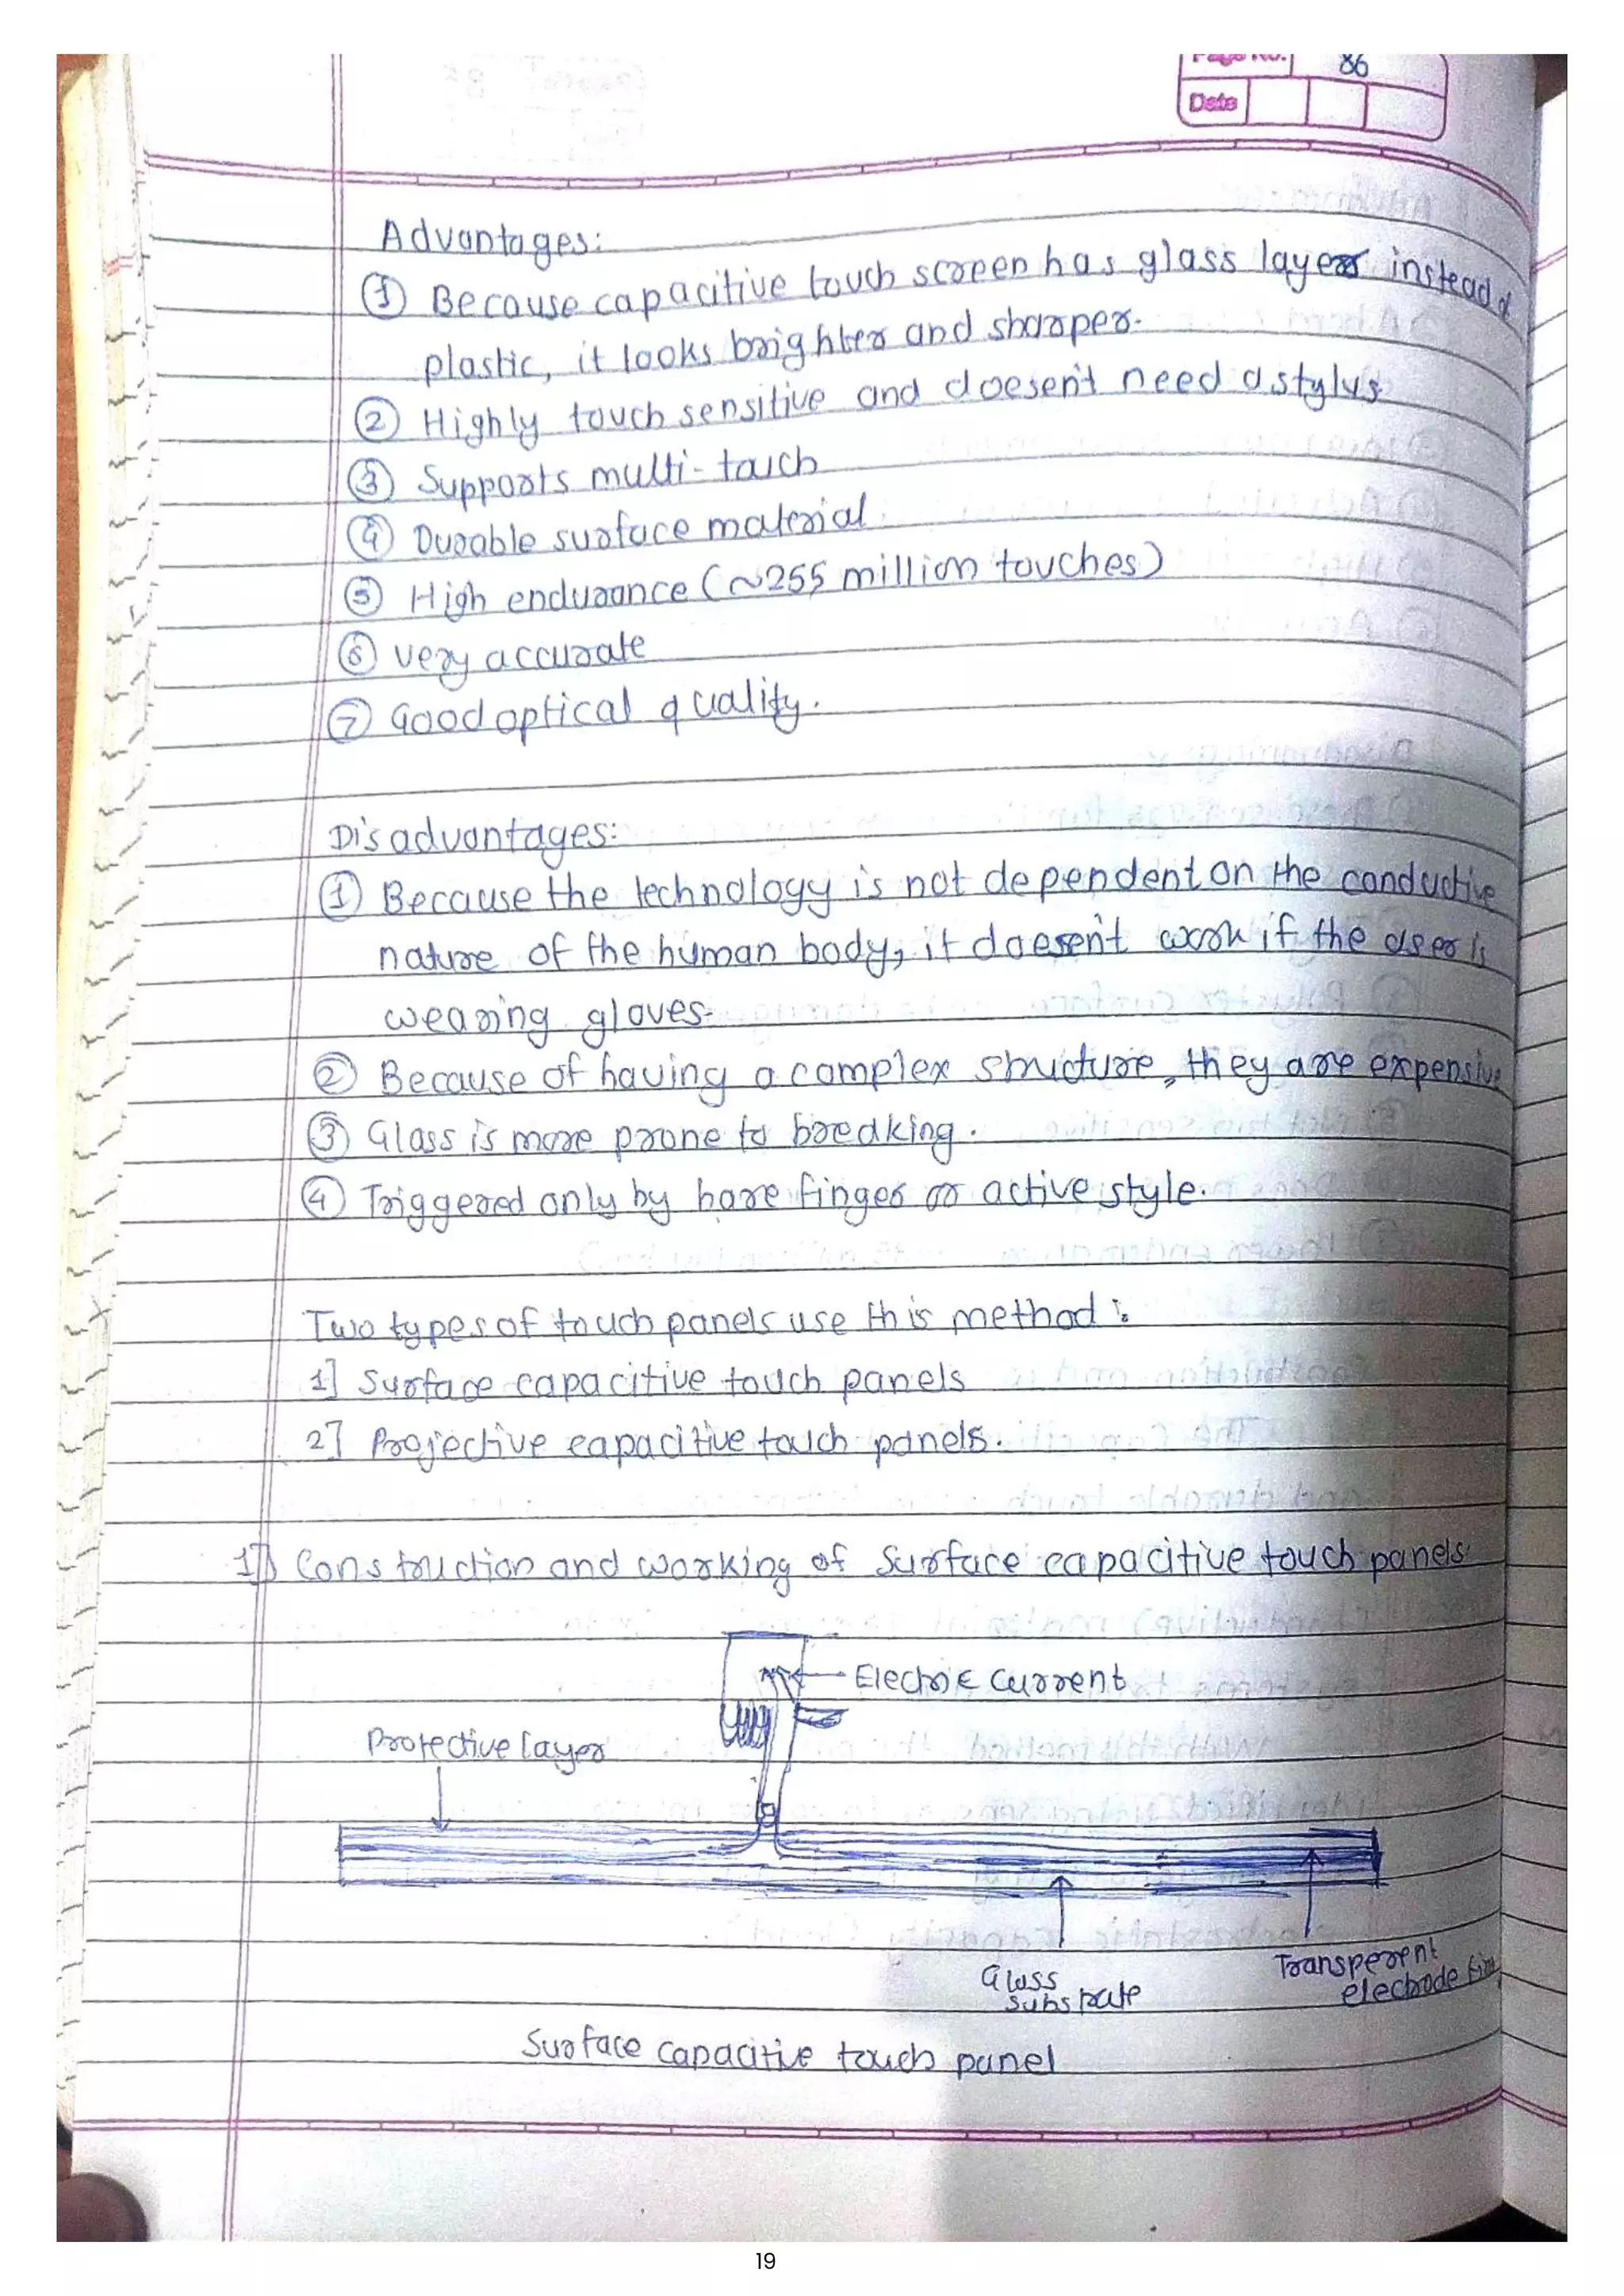 Page No. 86
Date
Advantages:
① Because capacitive touch screen has glass layer instead of
plastic, it looks brighter and sharper.
② Highly touch sensitive and doesen't need a stylus
③ Supports multi-touch
④ Durable surface material
⑤ High endurance (~255 million touches)
⑥ very accurate
⑦ Good optical quality.
Disadvantages:
① Because the technology is not dependent on the conductive
nature of the human body, it doesen't work if the user is
wearing gloves.
② Because of having a complex structure, they are expensive
③ Glass is more prone to breaking.
④ Triggered only by bare finger or active style.
Two types of touch panels use this method :
1] Surface capacitive touch panels
2] Projective capacitive touch panels.
1] Construction and working of Surface capacitive touch panels
Electric Current
Protective layer
Glass
substrate
Transperent
electrode film
Surface capacitive touch panel
19